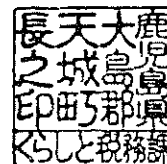 鹿児島県
大島郡
天城町
長之印
くらしと税務課